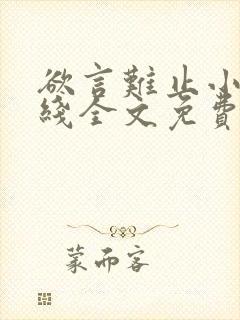 欲言難止小
綫全文免費
蒙而客